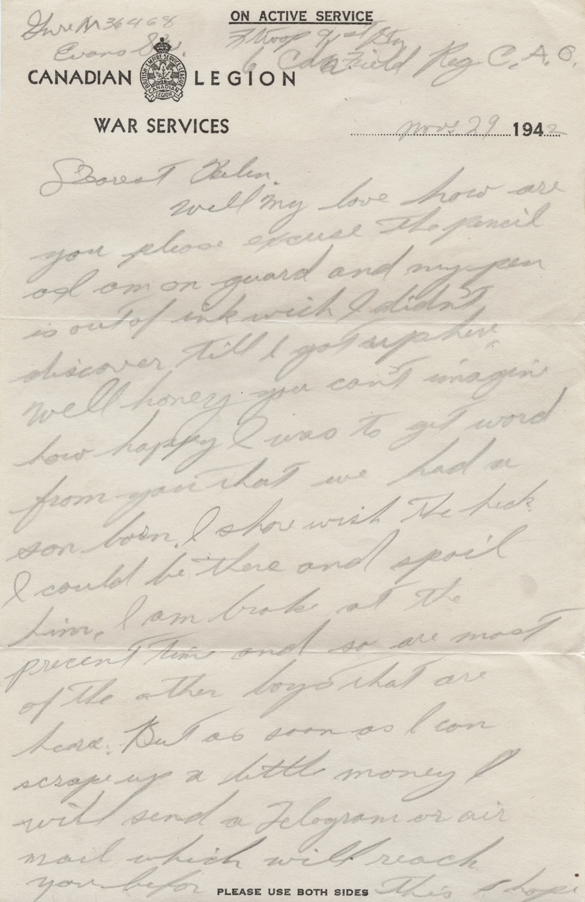 ON ACTIVE SERVICE
Gnr M36468
Evans S.W.
6 Can Field Reg C.A.O.
CANADIAN LEGION
WAR SERVICES
Nov 29 1942
Dearest Helen.
Well my love how are
you please excuse the pencil
as I am on guard and my pen
is out of ink wich I didn't
discover till I got up hear
Well honey you can't imagin
how happy I was to get word
from you that we had a
son born. I shore wish the heck
I could be there and spoil
him. I am broke at the
precent time and so are most
of the other boys that are
heare. But as soon as I can
scrape up a little money I
will send a Telegram or air
mail which will reach
you befor this I hope
PLEASE USE BOTH SIDES